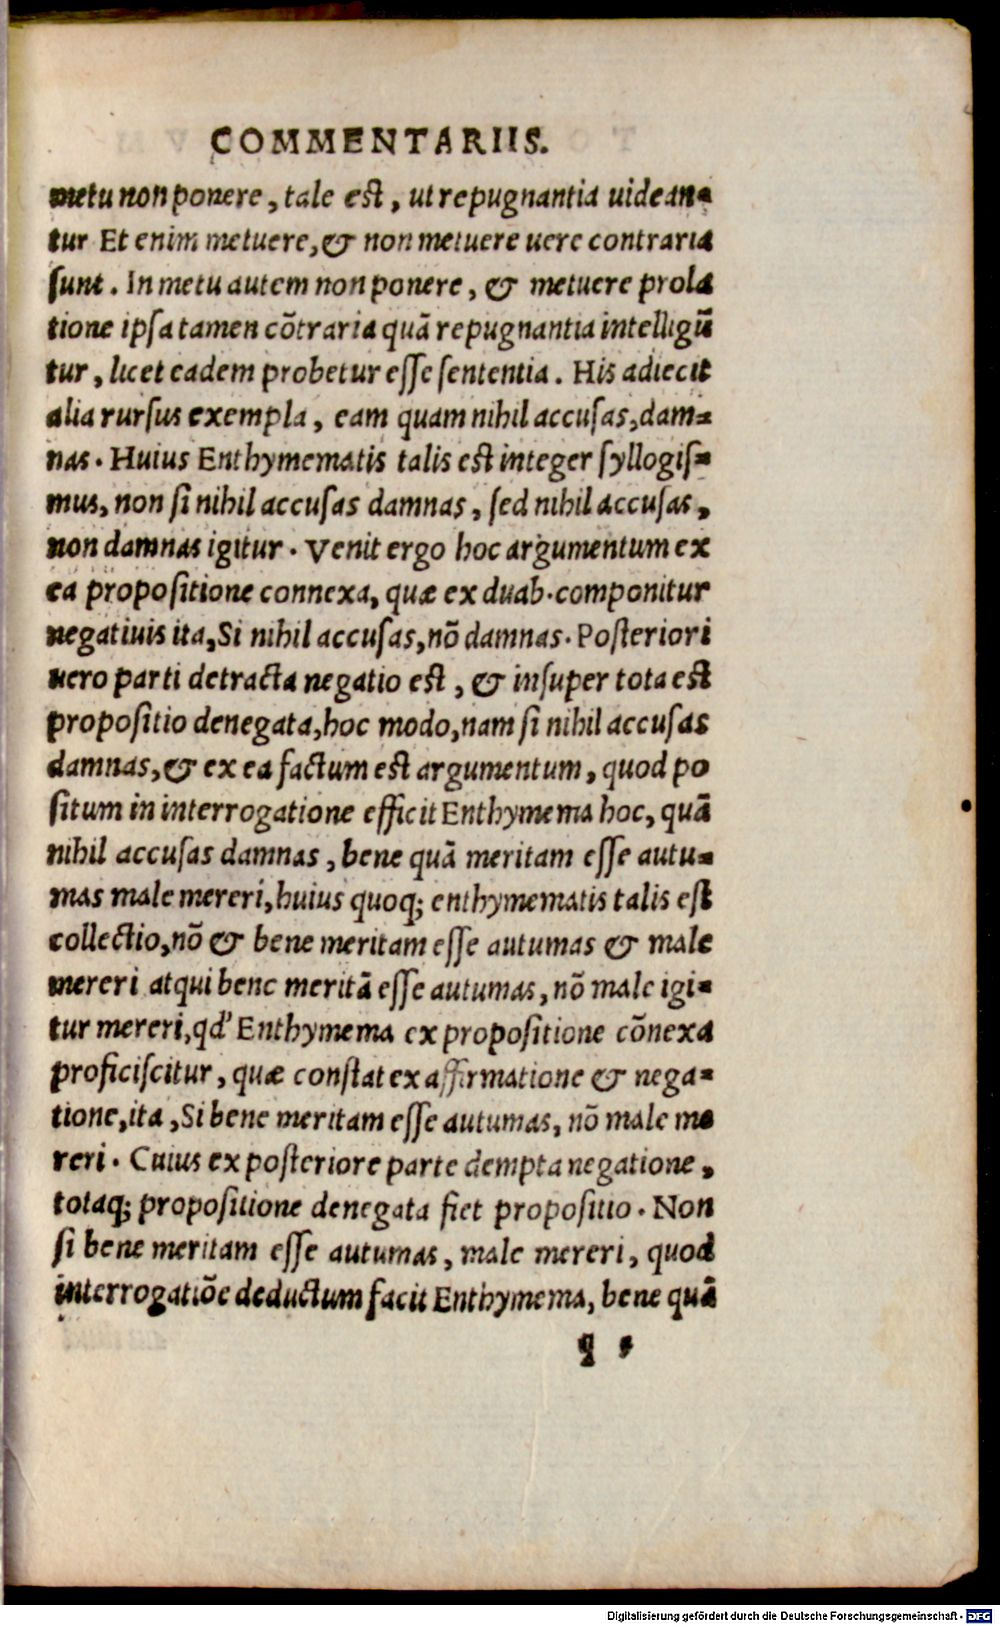 COMMENTARIIS.
metu non ponere, tale est, ut repugnantia uidean-
tur Et enim metuere, & non metuere uere contraria
sunt. In metu autem non ponere, & metuere prola
tione ipsa tamen cōtraria quā repugnantia intelligū
tur, licet eadem probetur esse sententia. His adiecit
alia rursus exempla, eam quam nihil accusas, dam-
nas. Huius Enthymematis talis est integer syllogis-
mus, non si nihil accusas damnas, sed nihil accusas,
non damnas igitur. Venit ergo hoc argumentum ex
ea propositione connexa, quæ ex duab. componitur
negatiuis ita, Si nihil accusas, nō damnas. Posteriori
uero parti detracta negatio est, & insuper tota est
propositio denegata, hoc modo, nam si nihil accusas
damnas, & ex ea factum est argumentum, quod po
situm in interrogatione efficit Enthymema hoc, quā
nihil accusas damnas, bene quā meritam esse autu-
mas male mereri, huius quoq; enthymematis talis est
collectio, nō & bene meritam esse autumas & male
mereri atqui bene meritā esse autumas, nō male igi-
tur mereri, qd' Enthymema ex propositione cōnexa
proficiscitur, quæ constat ex affirmatione & nega-
tione, ita, Si bene meritam esse autumas, nō male me
reri. Cuius ex posteriore parte dempta negatione,
totaq; propositione denegata fiet propositio. Non
si bene meritam esse autumas, male mereri, quod
interrogatiōe deductum facit Enthymema, bene quā
Digitalisierung gefördert durch die Deutsche Forschungsgemeinschaft - DFG